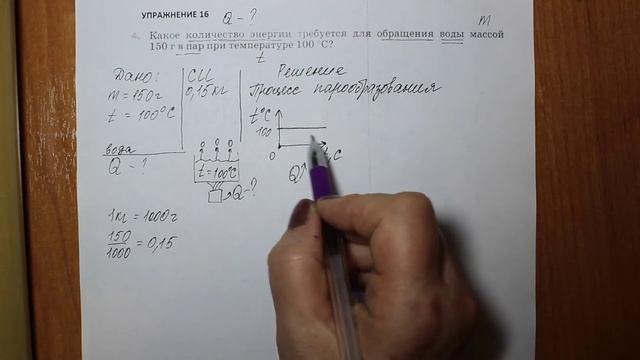 УПРАЖНЕНИЕ 16
Q - ?
m
4. Какое количество энергии требуется для обращения воды массой
150 г в пар при температуре 100 °C?
t
Дано:
m = 150г
t = 100°C
вода
Q - ?
СИ
0,15кг
Решение
Процесс парообразования
t°C
100
0
t, c
Q↑
t = 100°C
Q - ?
1кг = 1000г
150/1000 = 0,15